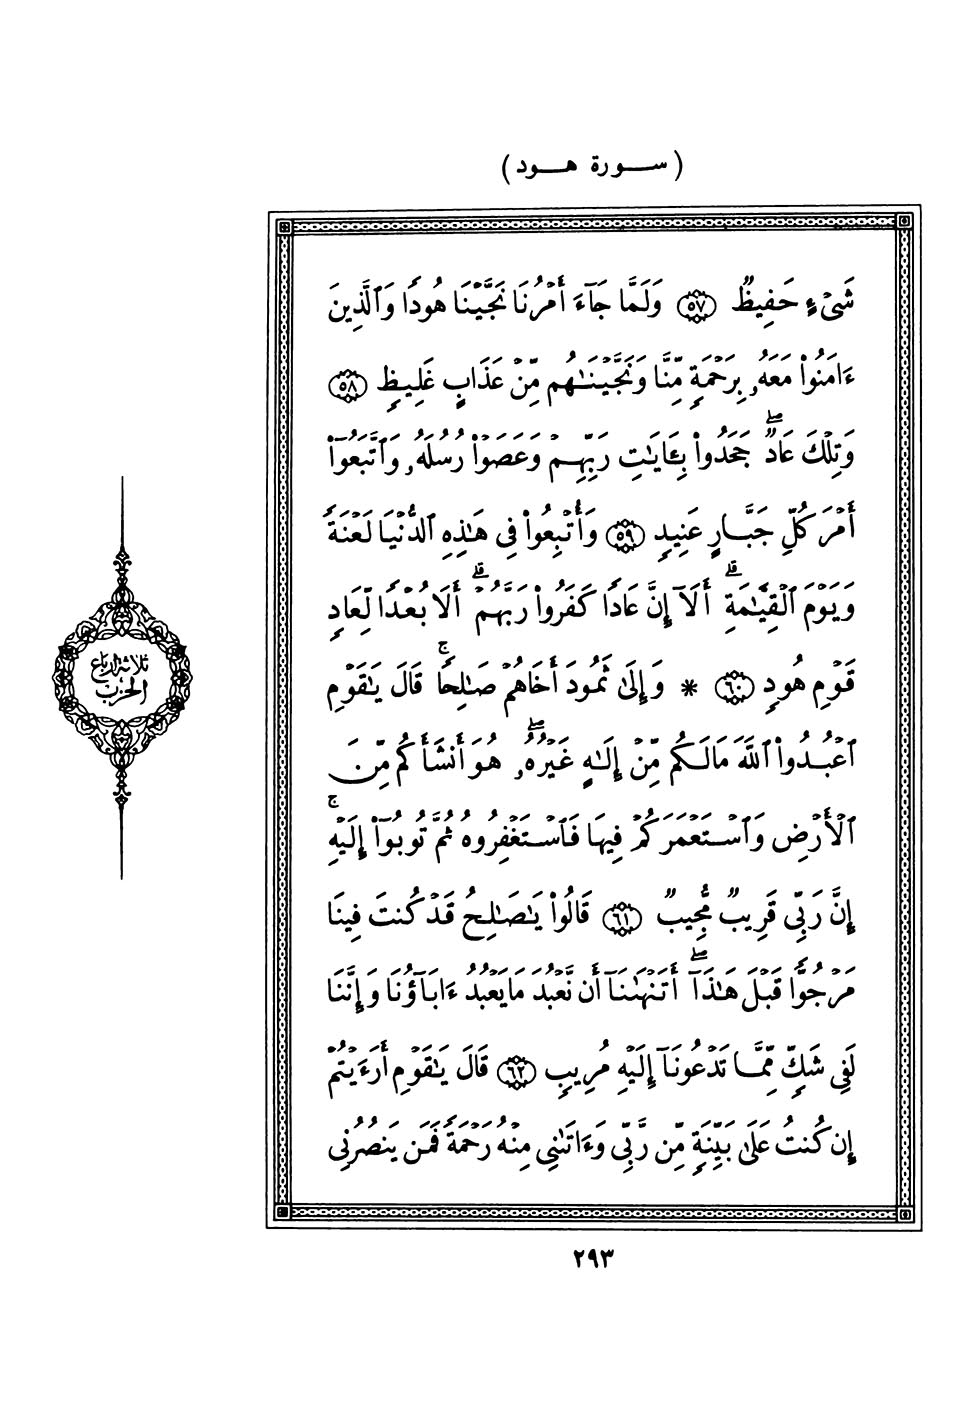 (سورة هود)
شَىْءٍ حَفِيظٌ ٥٧ وَلَمَّا جَآءَ أَمْرُنَا نَجَّيْنَا هُودًا وَٱلَّذِينَ
ءَامَنُوا۟ مَعَهُۥ بِرَحْمَةٍ مِّنَّا وَنَجَّيْنَـٰهُم مِّنْ عَذَابٍ غَلِيظٍ ٥٨
وَتِلْكَ عَادٌ ۖ جَحَدُوا۟ بِـَٔايَـٰتِ رَبِّهِمْ وَعَصَوْا۟ رُسُلَهُۥ وَٱتَّبَعُوٓا۟
أَمْرَ كُلِّ جَبَّارٍ عَنِيدٍ ٥٩ وَأُتْبِعُوا۟ فِى هَـٰذِهِ ٱلدُّنْيَا لَعْنَةً
وَيَوْمَ ٱلْقِيَـٰمَةِ ۗ أَلَآ إِنَّ عَادًا كَفَرُوا۟ رَبَّهُمْ ۗ أَلَا بُعْدًا لِّعَادٍ
قَوْمِ هُودٍ ٦٠ * وَإِلَىٰ ثَمُودَ أَخَاهُمْ صَـٰلِحًا ۚ قَالَ يَـٰقَوْمِ
ٱعْبُدُوا۟ ٱللَّهَ مَا لَكُم مِّنْ إِلَـٰهٍ غَيْرُهُۥ ۖ هُوَ أَنشَأَكُم مِّنَ
ٱلْأَرْضِ وَٱسْتَعْمَرَكُمْ فِيهَا فَٱسْتَغْفِرُوهُ ثُمَّ تُوبُوٓا۟ إِلَيْهِ ۚ
إِنَّ رَبِّى قَرِيبٌ مُّجِيبٌ ٦١ قَالُوا۟ يَـٰصَـٰلِحُ قَدْ كُنتَ فِينَا
مَرْجُوًّا قَبْلَ هَـٰذَآ ۖ أَتَنْهَىٰنَآ أَن نَّعْبُدَ مَا يَعْبُدُ ءَابَآؤُنَا وَإِنَّنَا
لَفِى شَكٍّ مِّمَّا تَدْعُونَآ إِلَيْهِ مُرِيبٍ ٦٢ قَالَ يَـٰقَوْمِ أَرَءَيْتُمْ
إِن كُنتُ عَلَىٰ بَيِّنَةٍ مِّن رَّبِّى وَءَاتَىٰنِى مِنْهُ رَحْمَةً فَمَن يَنصُرُنِى
ثلاثة أرباع
الحزب
٢٩٣